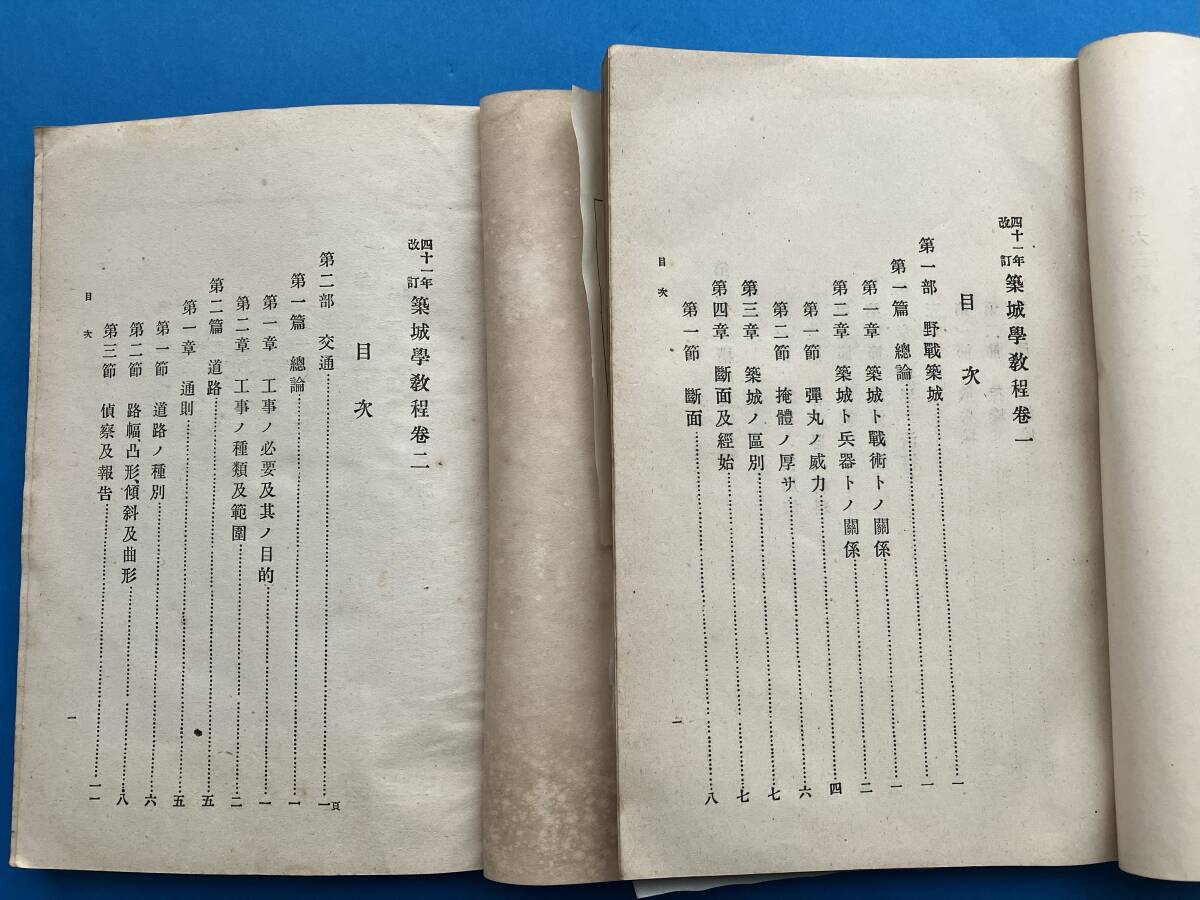 四十一年改訂 築城學教程卷一
目次
第一部 野戰築城 一
第一篇 總論 一
第一章 築城ト戰術トノ關係 一
第二章 築城ト兵器トノ關係 二
第一節 彈丸ノ威力 四
第二節 掩體ノ厚サ 六
第三章 築城ノ區別 七
第四章 斷面及經始 七
第一節 斷面 八
目次
一
四十一年改訂 築城學教程卷二
目次
頁
第二部 交通 一
第一篇 總論 一
第一章 工事ノ必要及其ノ目的 一
第二章 工事ノ種類及範圍 二
第二篇 道路 五
第一章 通則 五
第一節 道路ノ種別 六
第二節 路幅、凸形、傾斜及曲形 八
第三節 偵察及報告 一一
目次
一